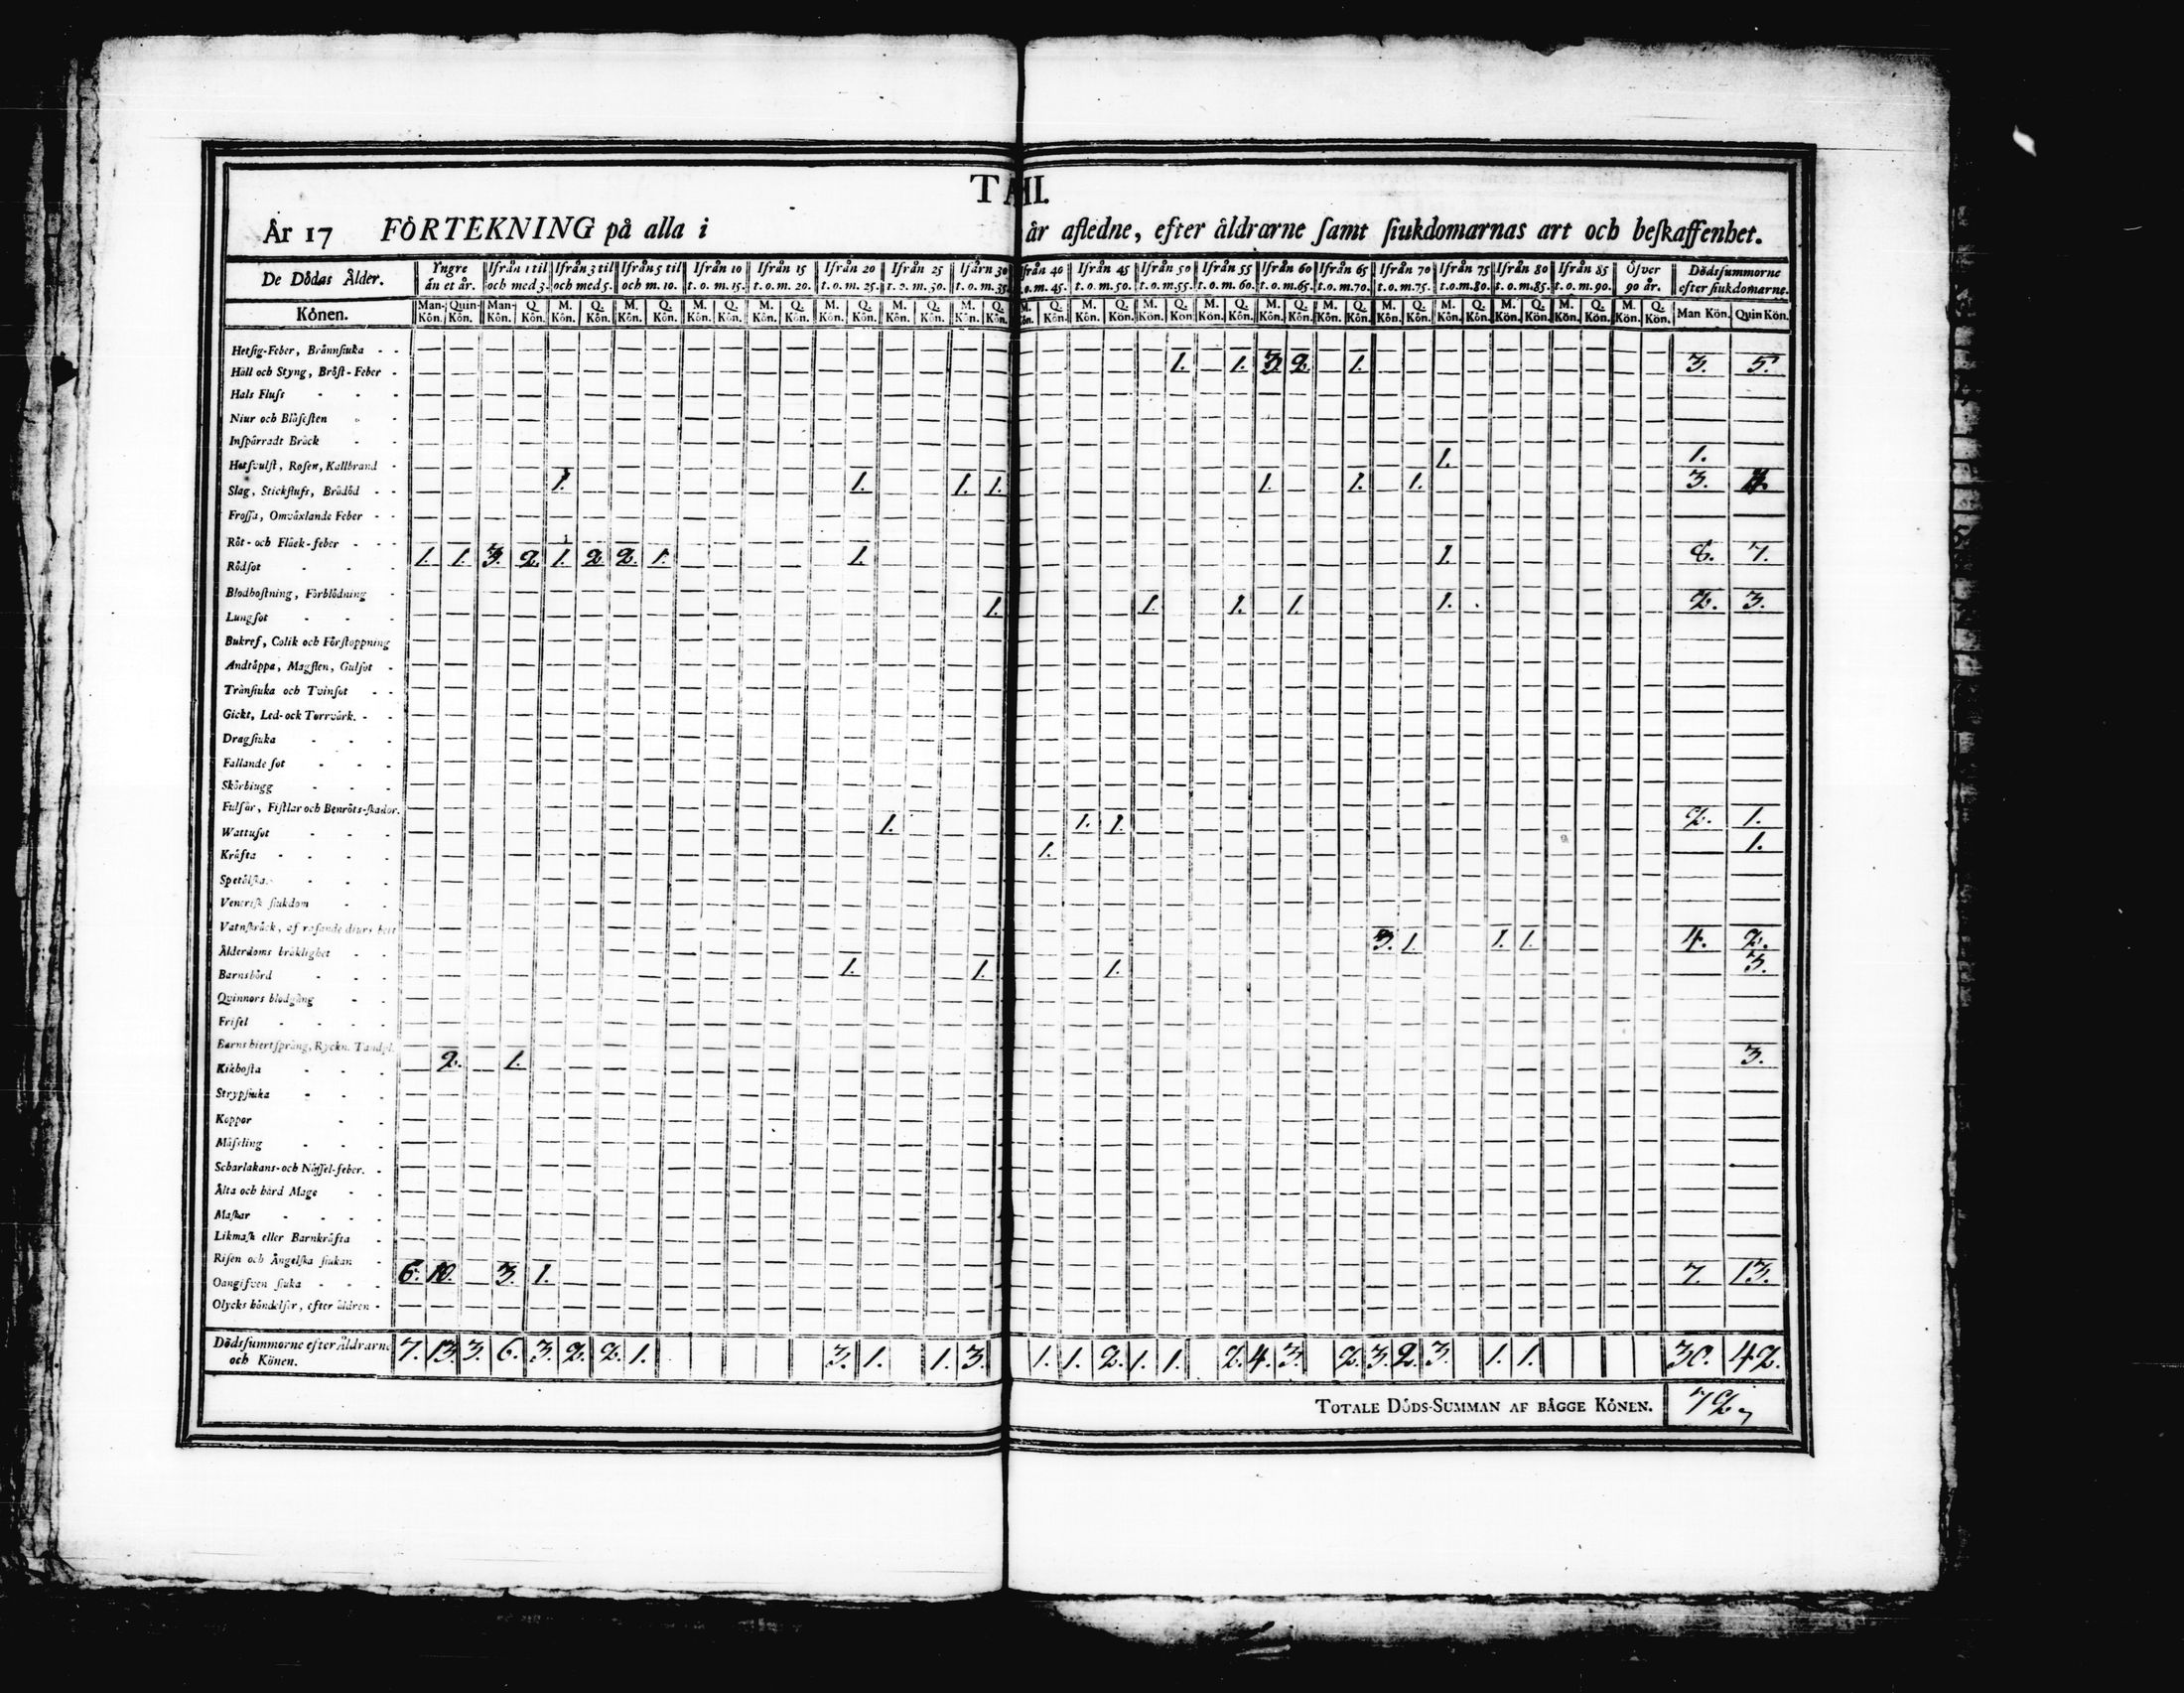 TA II.
År 17 FÖRTEKNING på alla i år afledne, efter åldrarne samt siukdomarnas art och beskaffenhet.
De Dödas Ålder. Yngre än et år. Ifrån 1 til och med 3. Ifrån 3 til och med 5. Ifrån 5 til och m. 10. Ifrån 10 t. o. m. 15. Ifrån 15 t. o. m. 20. Ifrån 20 t. o. m. 25. Ifrån 25 t. o. m. 30. Ifårn 30 t. o. m. 35. Ifrån 40 t. o. m. 45. Ifrån 45 t. o. m. 50. Ifrån 50 t. o. m. 55. Ifrån 55 t. o. m. 60. Ifrån 60 t. o. m. 65. Ifrån 65 t. o. m. 70. Ifrån 70 t. o. m. 75. Ifrån 75 t. o. m. 80. Ifrån 80 t. o. m. 85. Ifrån 85 t. o. m. 90. Öfver 90 år. Dödssummorne efter siukdomarne.
Könen. Man-Kön. Quin-Kön. Man-Kön. Q. Kön. M. Kön. Q. Kön. M. Kön. Q. Kön. M. Kön. Q. Kön. M. Kön. Q. Kön. M. Kön. Q. Kön. M. Kön. Q. Kön. M. Kön. Q. Kön. M. Kön. Q. Kön. M. Kön. Q. Kön. M. Kön. Q. Kön. M. Kön. Q. Kön. M. Kön. Q. Kön. M. Kön. Q. Kön. M. Kön. Q. Kön. M. Kön. Q. Kön. M. Kön. Q. Kön. M. Kön. Q. Kön. M. Kön. Q. Kön. Man Kön. Quin Kön.
Hetsig-Feber, Brännsiuka
Håll och Styng, Bröst-Feber 1. 1. 3. 2. 1. 3. 5.
Hals Fluss
Niur och Blåsesten
Inspärradt Bråck
Hetsvulst, Rosen, Kallbrand 1. 1.
Slag, Stickfluss, Brådöd 1. 1. 1. 1. 1. 1. 1. 3.
Frossa, Omväxlande Feber
Röt- och Fläck-feber
Rödsot 1. 1. 3. 2. 1. 2. 2. 1. 1. 1. 8. 7.
Blodhostning, Förblödning
Lungsot 1. 1. 1. 1. 1. 2. 3.
Bukref, Colik och Förstoppning
Andtäppa, Magsten, Gulsot
Trånsiuka och Tvinsot
Gickt, Led-ock Torrvärk.
Dragsiuka
Fallande sot
Skörbiugg
Fulsår, Fistlar och Benröts-skador.
Wattusot 1. 1. 1. 2. 1.
Kräfta 1. 1.
Spetälska.
Venerisk siukdom
Vatnskräck, af rasande diurs bett
Ålderdoms bräklighet 3. 1. 1. 1. 4. 2.
Barnsbörd 1. 1. 1. 3.
Qvinnors blodgång
Frisel
Barns hiertsprång, Ryckn. Tandpl.
Kikhosta 2. 1. 3.
Strypsiuka
Koppor
Mässling
Scharlakans- och Nässel-feber.
Älta och hård Mage
Maskar
Likmask eller Barnkräfta
Risen och Ängelska siukan
Oangifven siuka 6. 10. 3. 1. 7. 13.
Olycks händelser, efter åldren
Dödssummorne efter Åldrarne och Könen. 7. 13. 3. 6. 3. 2. 2. 1. 3. 1. 1. 3. 1. 1. 2. 1. 1. 2. 4. 3. 2. 3. 2. 3. 1. 1. 30. 42.
TOTALE DÖDS-SUMMAN AF BÅGGE KÖNEN. 72